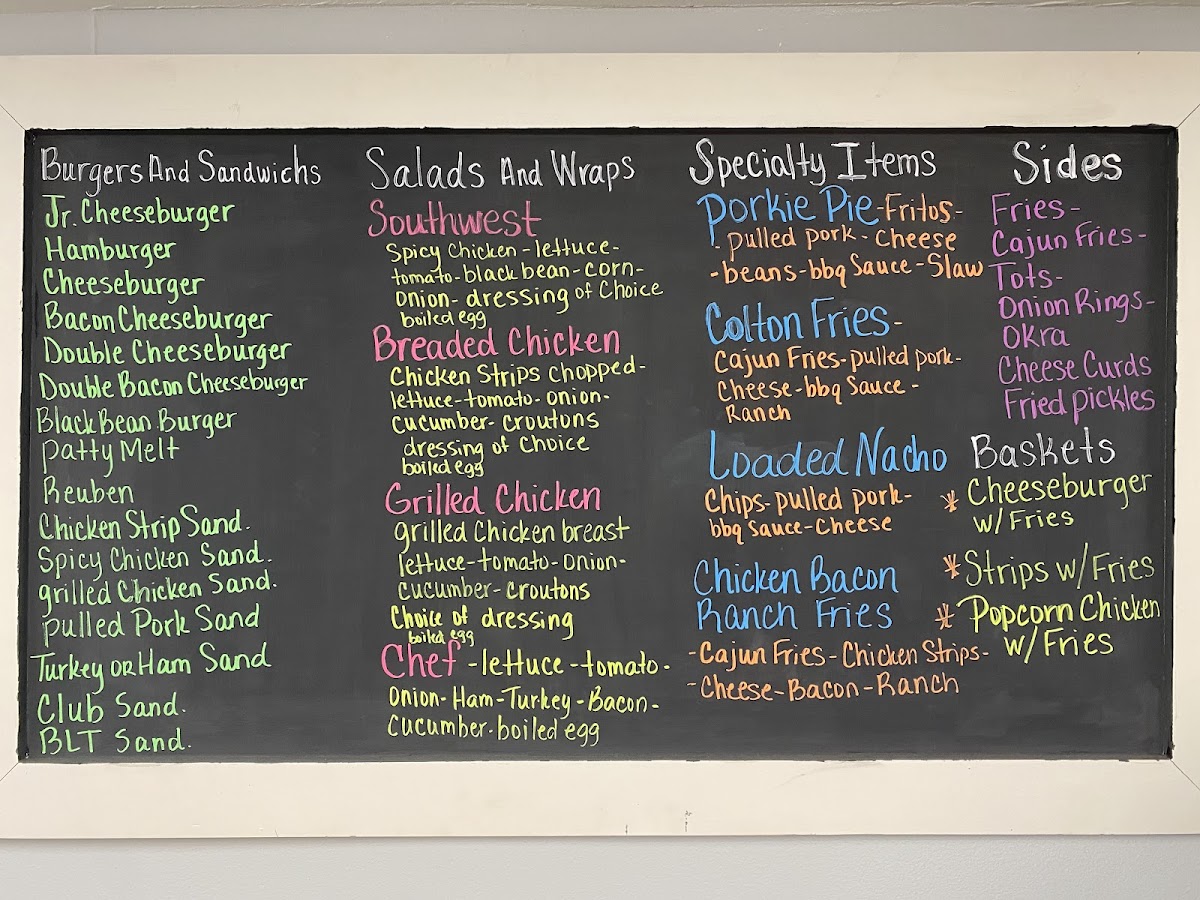 Burgers And Sandwichs
Jr. Cheeseburger
Hamburger
Cheeseburger
Bacon Cheeseburger
Double Cheeseburger
Double Bacon Cheeseburger
Black Bean Burger
Patty Melt
Reuben
Chicken Strip Sand.
Spicy Chicken Sand.
grilled Chicken Sand.
pulled Pork Sand
Turkey or Ham Sand
Club Sand.
BLT Sand.
Salads And Wraps
Southwest
Spicy Chicken-lettuce-
tomato-black bean-corn-
Onion-dressing of Choice
boiled egg
Breaded Chicken
Chicken Strips chopped-
lettuce-tomato-onion-
cucumber-croutons
dressing of Choice
boiled egg
Grilled Chicken
grilled Chicken breast
lettuce-tomato-onion-
cucumber-croutons
Choice of dressing
boiled egg
Chef-lettuce-tomato-
Onion-Ham-Turkey-Bacon-
Cucumber-boiled egg
Specialty Items
Porkie Pie-Fritos-
-pulled pork-Cheese
-beans-bbq Sauce-Slaw
Colton Fries-
Cajun Fries-pulled pork-
Cheese-bbq Sauce-
Ranch
Loaded Nacho
Chips-pulled pork-
bbq Sauce-Cheese
Chicken Bacon
Ranch Fries
-Cajun Fries-Chicken Strips-
-Cheese-Bacon-Ranch
Sides
Fries-
Cajun Fries-
Tots-
Onion Rings-
Okra
Cheese Curds
Fried pickles
Baskets
* Cheeseburger
w/Fries
* Strips w/Fries
* Popcorn Chicken
w/Fries